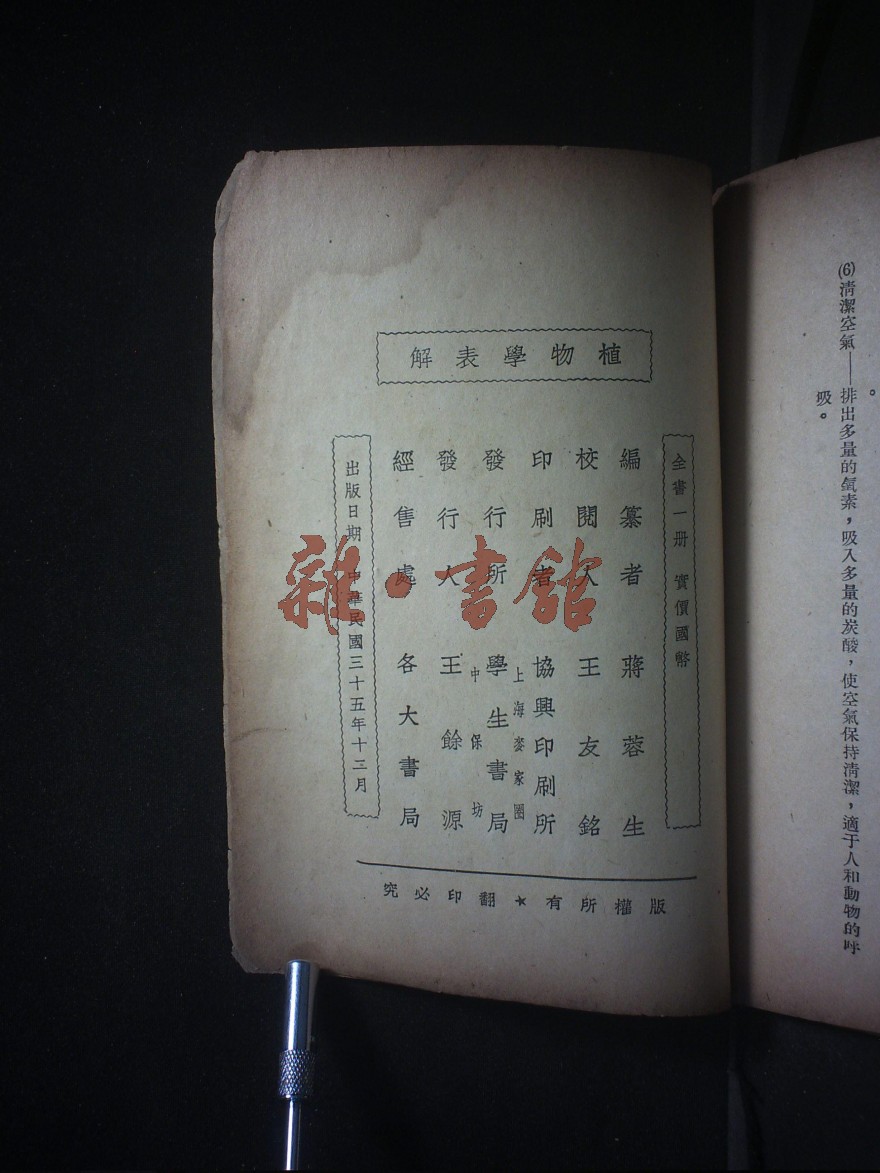 。
(6)清潔空氣——排出多量的氧素，吸入多量的炭酸，使空氣保持清潔，適于人和動物的呼
吸。
植物學表解
全書一册 實價國幣
編纂者 蔣蓉生
校閱人 王友銘
印刷者 協興印刷所
上海麥家圈
發行所 學生書局
中保坊
發行人 王餘源
經售處 各大書局
出版日期 中華民國三十五年十二月
版權所有★翻印必究
雜·書館